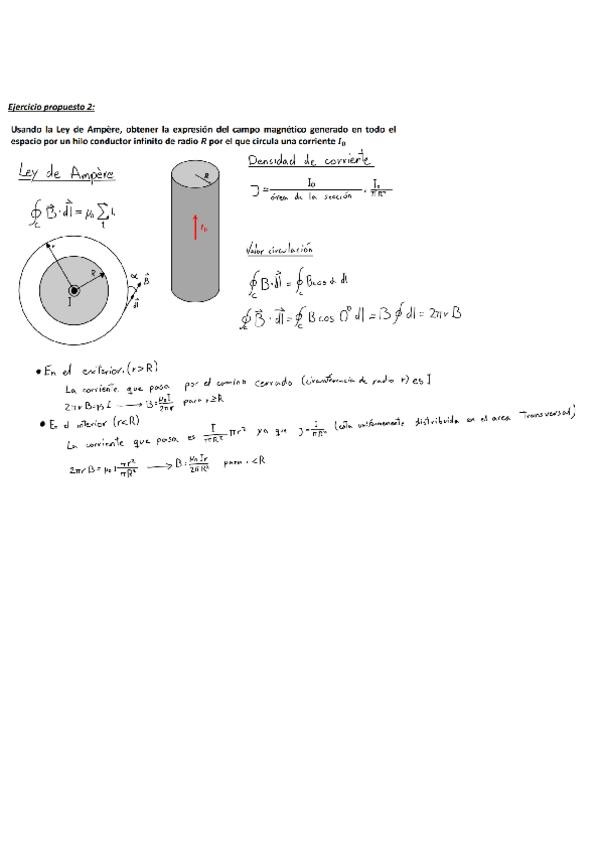 Ejercicio propuesto 2:
Usando la Ley de Ampère, obtener la expresión del campo magnético generado en todo el
espacio por un hilo conductor infinito de radio R por el que circula una corriente I₀
Ley de Ampère
∮_C B⃗·dl⃗ = μ₀ Σ_i I_i
R
I₀
Densidad de corriente
J = I₀ / área de la sección = I₀ / πR²
Valor circulación
∮_C B⃗·dl⃗ = ∮_C B cos α dl
∮_C B⃗·dl⃗ = ∮_C B cos 0° dl = B ∮ dl = 2πr B
r
R
α
B⃗
dl⃗
I
• En el exterior (r>R)
La corriente que pasa por el camino cerrado (circunferencia de radio r) es I
2πr B = μ₀ I → B = μ₀I / 2πr para r≥R
• En el interior (r<R)
La corriente que pasa es I/πR² πr² ya que J = I/πR² (está uniformemente distribuida en el area transversal)
2πr B = μ₀ I πr²/πR² → B = μ₀ I r / 2πR² para r<R